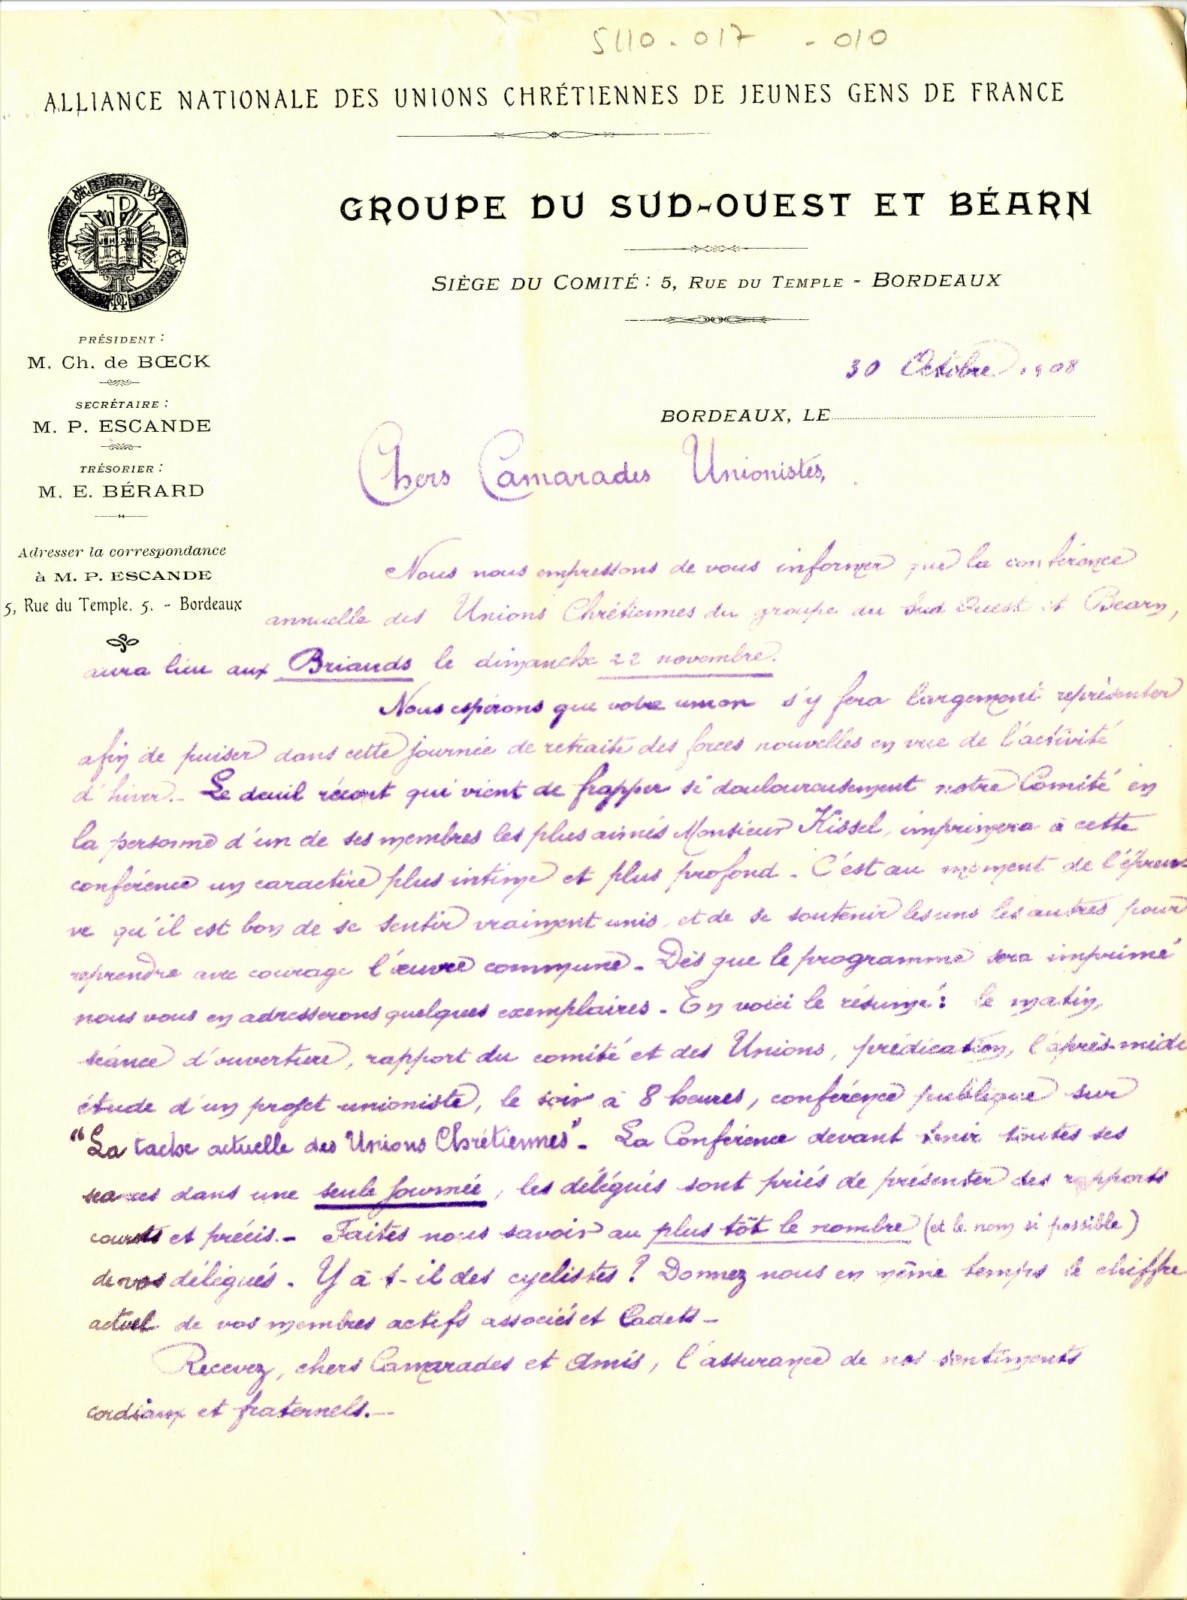 5110.017 - 010
ALLIANCE NATIONALE DES UNIONS CHRÉTIENNES DE JEUNES GENS DE FRANCE
GROUPE DU SUD-OUEST ET BÉARN
SIÈGE DU COMITÉ : 5, RUE DU TEMPLE - BORDEAUX
PRÉSIDENT :
M. Ch. de BŒCK
SECRÉTAIRE :
M. P. ESCANDE
TRÉSORIER :
M. E. BÉRARD
Adresser la correspondance
à M. P. ESCANDE
5, Rue du Temple. 5. - Bordeaux
30 Octobre 1908
BORDEAUX, LE
Chers Camarades Unionistes,
Nous nous empressons de vous informer que la conférence
annuelle des Unions Chrétiennes du groupe du Sud Ouest et Béarn,
aura lieu aux Briands le dimanche 22 novembre.
Nous espérons que votre union s'y fera largement représenter
afin de puiser dans cette journée de retraite des forces nouvelles en vue de l'activité
d'hiver. - Le deuil récent qui vient de frapper si douloureusement notre Comité en
la personne d'un de ses membres les plus aimés Monsieur Kissel, imprimera à cette
conférence un caractère plus intime et plus profond - C'est au moment de l'épreu-
ve qu'il est bon de se sentir vraiment unis, et de se soutenir les uns les autres pour
reprendre avec courage l'œuvre commune - Dès que le programme sera imprimé
nous vous en adresserons quelques exemplaires - En voici le résumé : le matin,
séance d'ouverture, rapport du comité et des Unions, prédication, l'après-midi
étude d'un projet unioniste, le soir à 8 heures, conférence publique sur
"La tache actuelle des Unions Chrétiennes" - La Conférence devant tenir toutes ses
seances dans une seule journée, les délégués sont priés de présenter des rapports
courts et précis. - Faites nous savoir au plus tôt le nombre (et le nom si possible)
de vos délégués. Y a t-il des cyclistes ? Donnez nous en même temps le chiffre
actuel de vos membres actifs associés et Cadets -
Recevez, chers Camarades et Amis, l'assurance de nos sentiments
cordiaux et fraternels. -